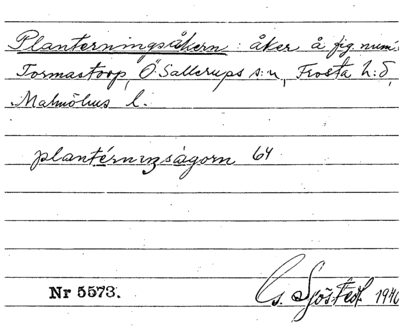 Planterningsåkern: åker å fig. num:
Tormastorp, Ö. Sallerups s:n, Frosta h:d,
Malmöhus l.
plantérnıŋsågorn 64
Nr 5573.
Sjöstedt. 1946